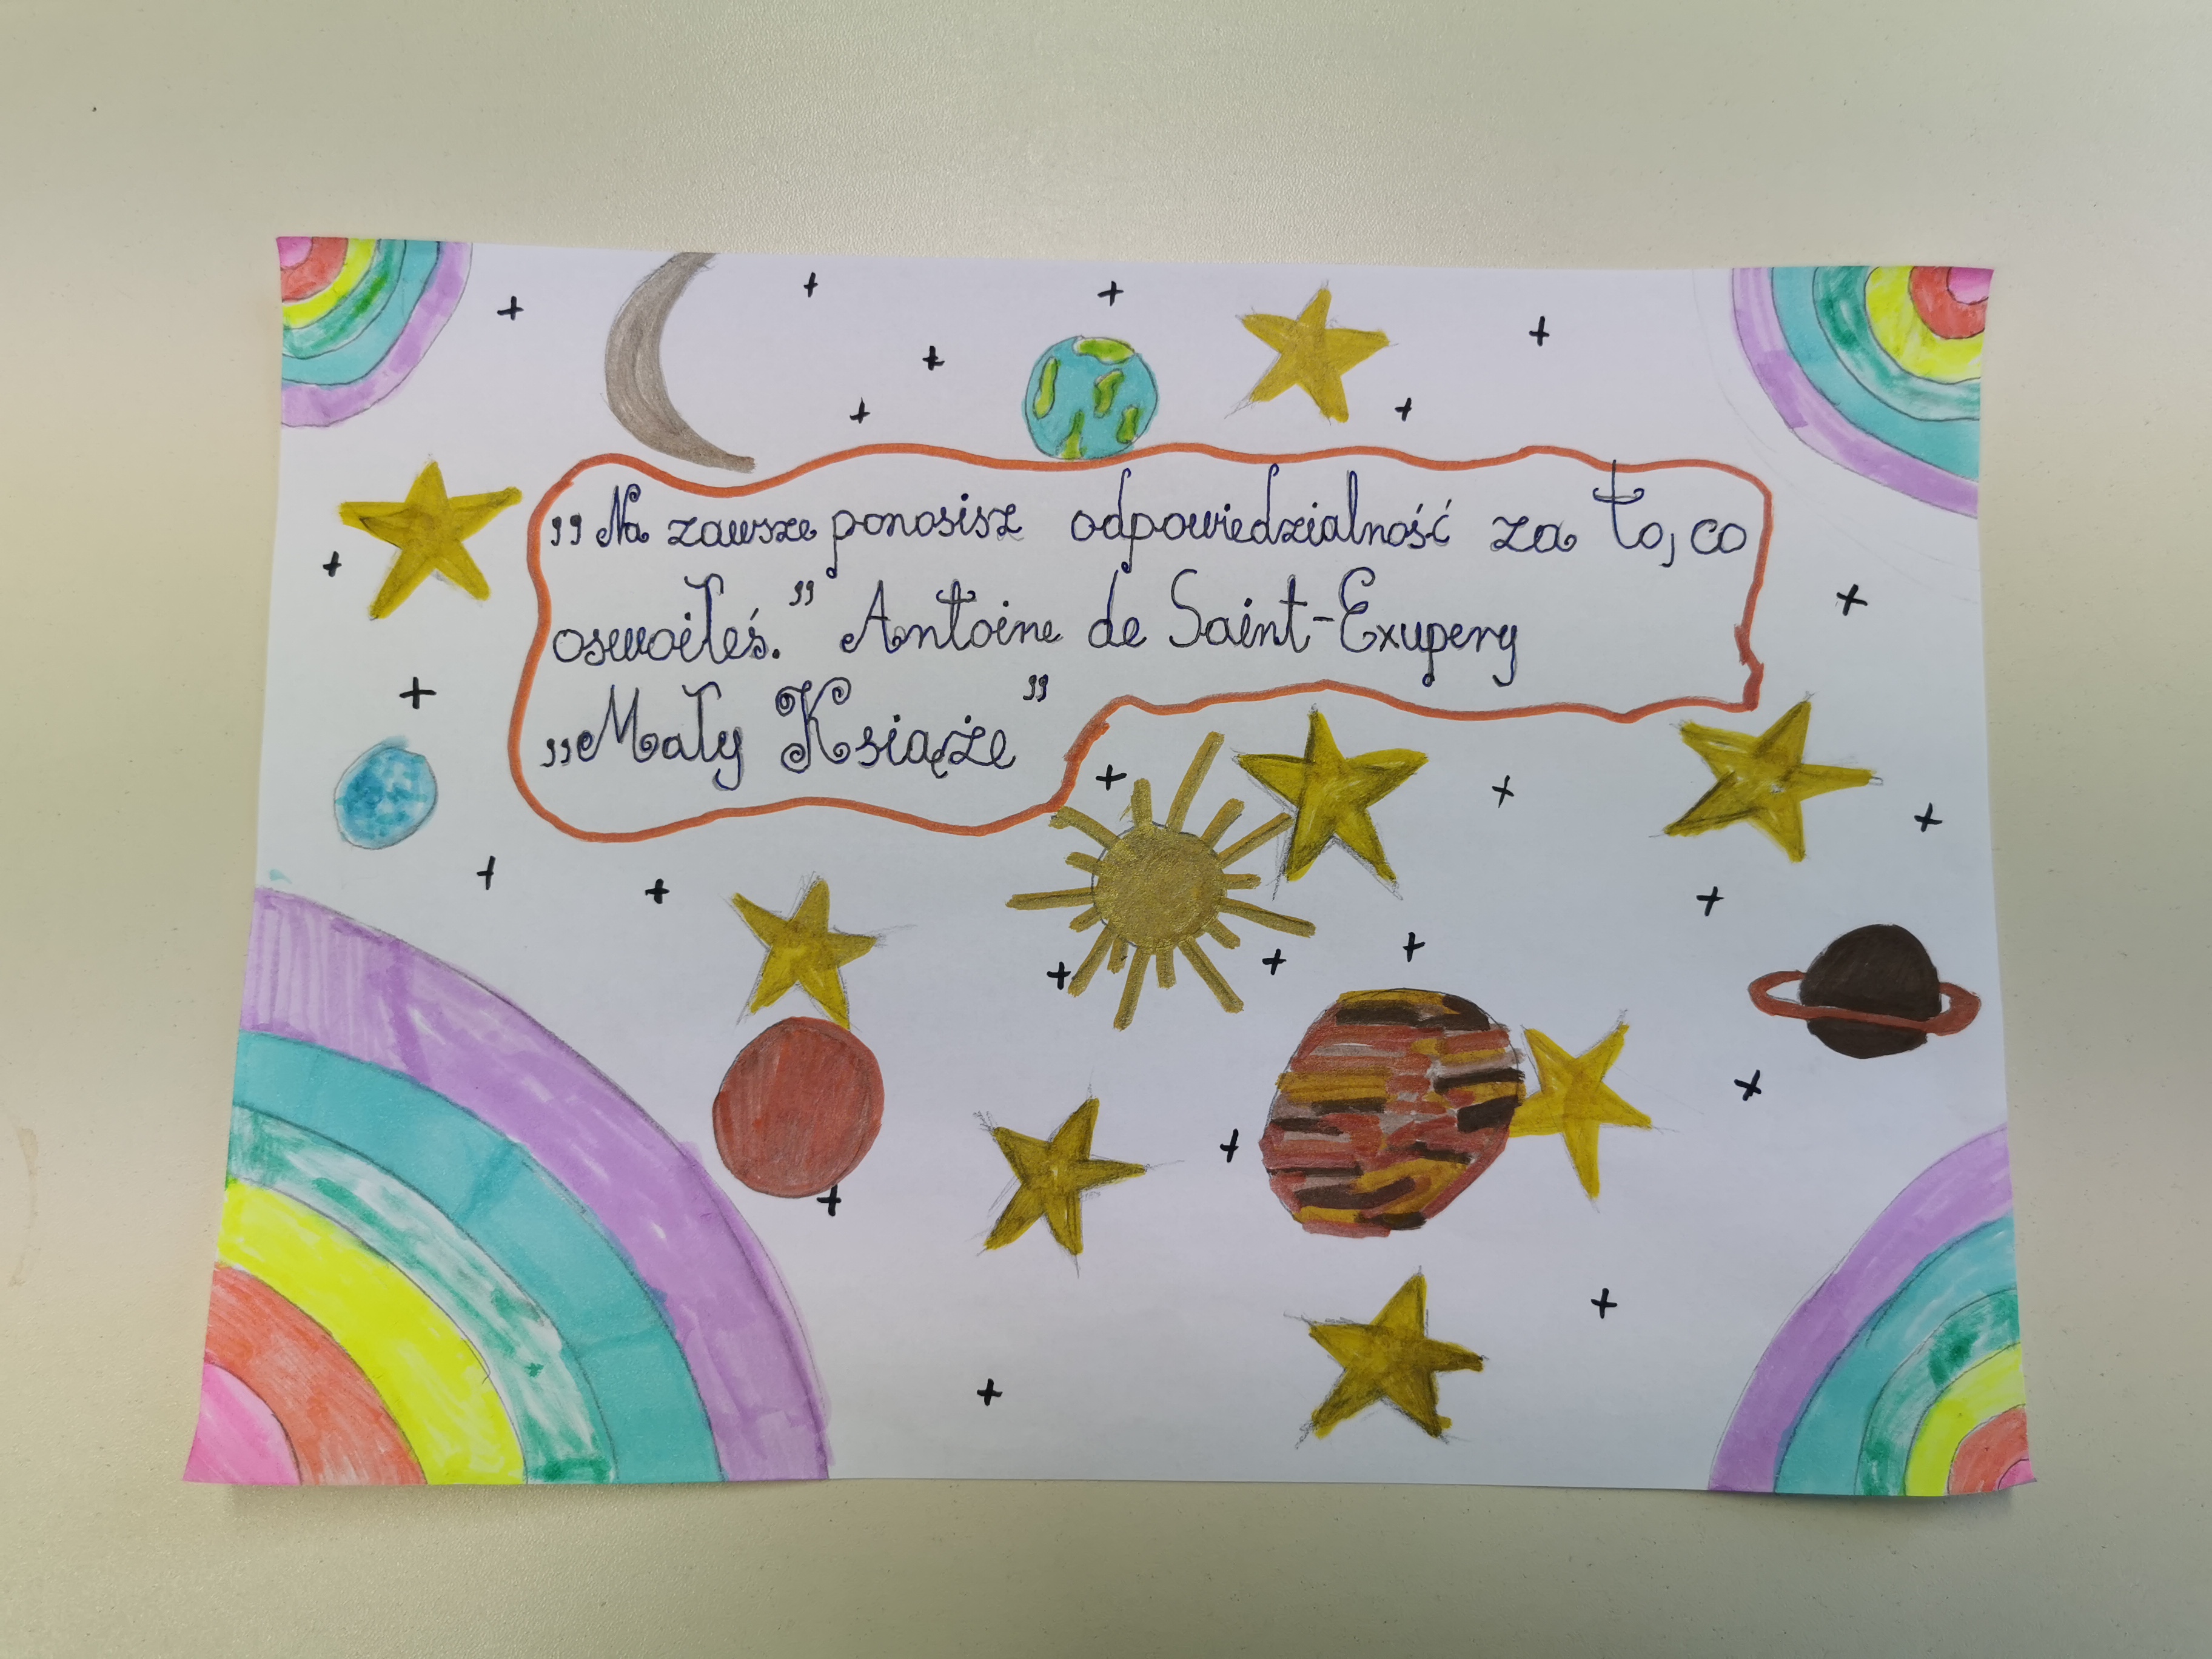 ,,Na zawsze ponosisz odpowiedzialność za to, co
oswoiłeś." Antoine de Saint-Exupery
,,Mały Książe"